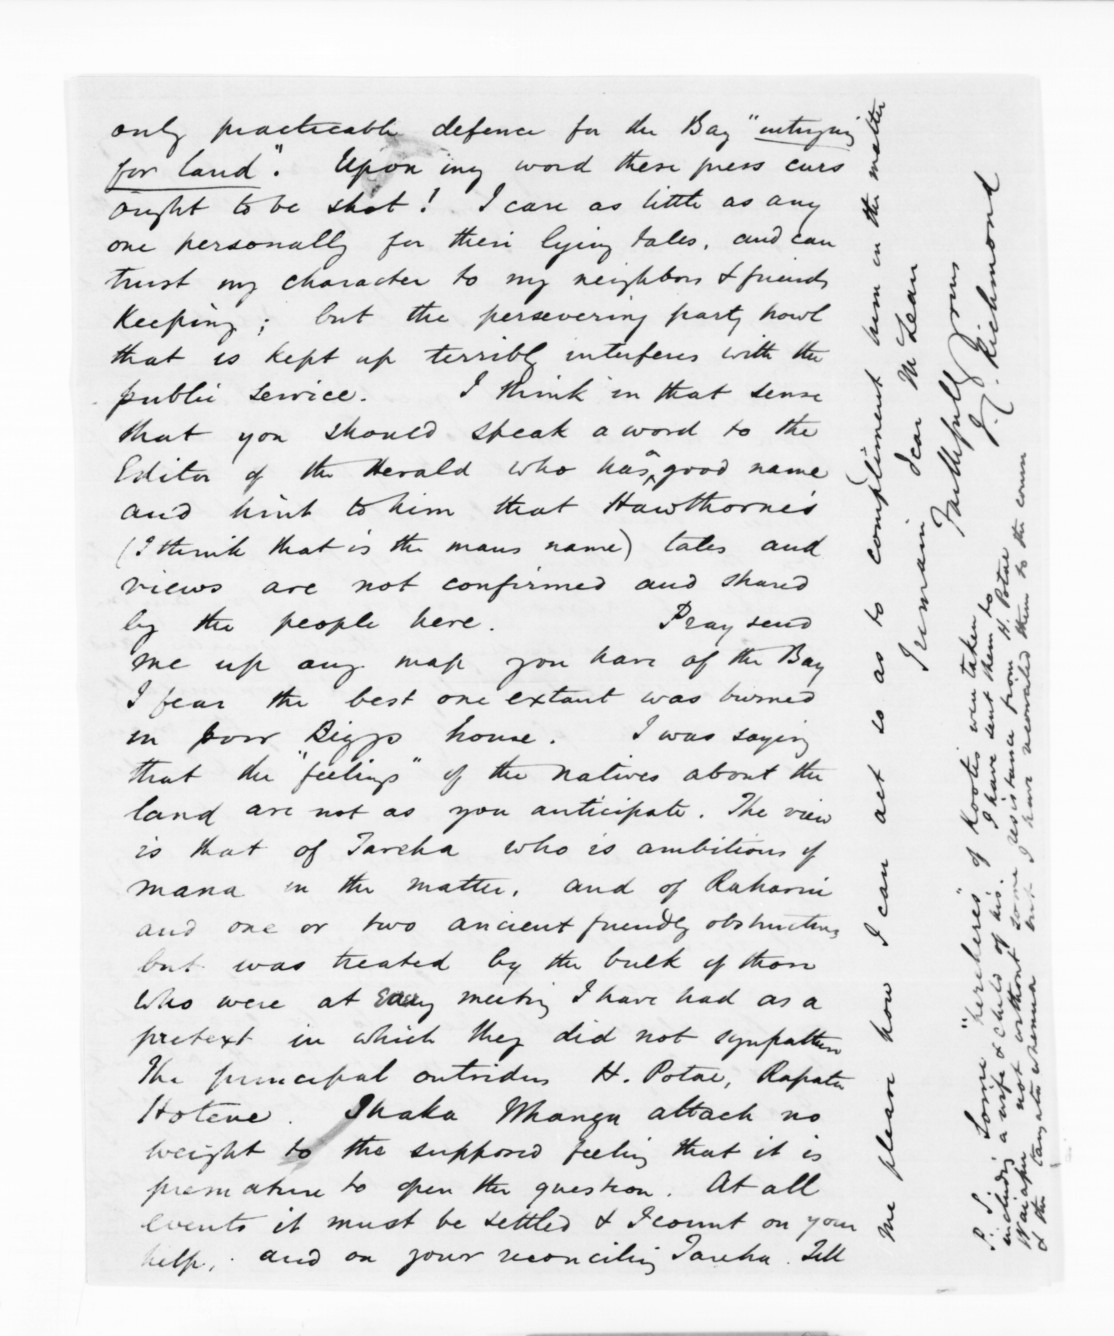 only practicable defence for the Bay "intriguing
for land". Upon my word these press curs
ought to be shot! I care as little as any
one personally for their lying tales, and can
trust my character to my neighbors & friends
Keeping; but the persevering party howl
that is kept up terribly interferes with the
public service. I think in that sense
that you should speak a word to the
Editor of the Herald who has a good name
and hint to him that Hawthorne's
(I think that is the mans name) tales and
views are not confirmed and shared
by the people here. Pray send
me up any map you have of the Bay
I fear the best one extant was burned
in poor Biggs house. I was saying
that the "feelings" of the Natives about the
land are not as you anticipate. The view
is that of Tareha who is ambitious of
mana in the matter, and of
and one or two ancient friendly obstructives
but was treated by the bulk of those
who were at every meeting I have had as a
pretext in which they did not sympathise
The principal outsiders H. Potae, Rapata
Hotene. Ihaka Whanga attach no
weight to the supposed feeling that it is
premature to open the question. At all
events it must be settled & I count on your
help, and on your reconciling Tareha. Tell
me please how I can act so as to compliment him in the matter
I remain Dear McLean
Faithfully Yours
J. C. Richmond
P.S. Some "herehere's" of Kooti's were taken
including a wife & child of his. I have sent them to
Waiapu not without some resistance from H. Potae
& the but I have us